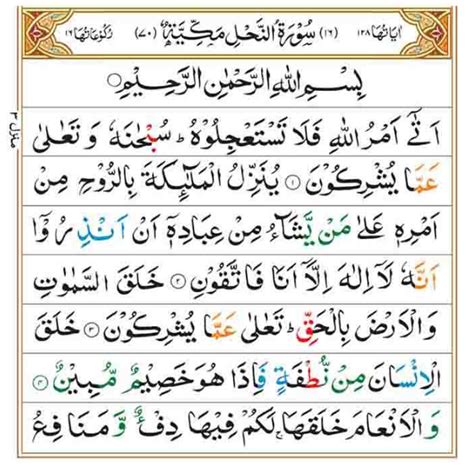 اٰيَاتُهَا ١٢٨ (١٦) سُوْرَةُ النَّحْلِ مَكِّيَّةٌ (٧٠) رُكُوْعَاتُهَا ١٦
بِسْمِ اللّٰهِ الرَّحْمٰنِ الرَّحِيْمِ
اَتٰۤى اَمْرُ اللّٰهِ فَلَا تَسْتَعْجِلُوْهُ ؕ سُبْحٰنَهٗ وَ تَعٰلٰى
عَمَّا يُشْرِكُوْنَ ۝۱ يُنَزِّلُ الْمَلٰٓئِكَةَ بِالرُّوْحِ مِنْ
اَمْرِهٖ عَلٰى مَنْ يَّشَآءُ مِنْ عِبَادِهٖۤ اَنْ اَنْذِرُوْۤا
اَنَّهٗ لَاۤ اِلٰهَ اِلَّاۤ اَنَا فَاتَّقُوْنِ ۝۲ خَلَقَ السَّمٰوٰتِ
وَ الْاَرْضَ بِالْحَقِّ ؕ تَعٰلٰى عَمَّا يُشْرِكُوْنَ ۝۳ خَلَقَ
الْاِنْسَانَ مِنْ نُّطْفَةٍ فَاِذَا هُوَ خَصِيْمٌ مُّبِيْنٌ ۝۴
وَ الْاَنْعَامَ خَلَقَهَا ۚ لَكُمْ فِيْهَا دِفْءٌ وَّ مَنَافِعُ
منزل ٣